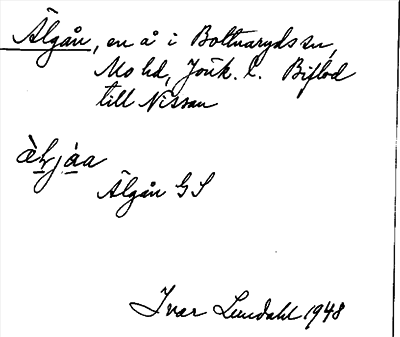 Älgån, en å i Bolmaryds sn,
Mo hd, Jönk. l. Biflod
till Nissan
àljáa
Älgån GS
Ivar Lundahl 1948